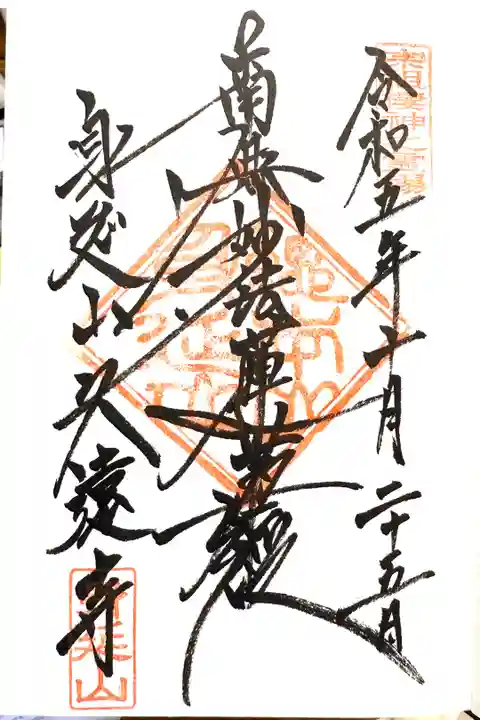 令和五年十月二十五日
南無妙法蓮華經
身延山久遠寺
身延山